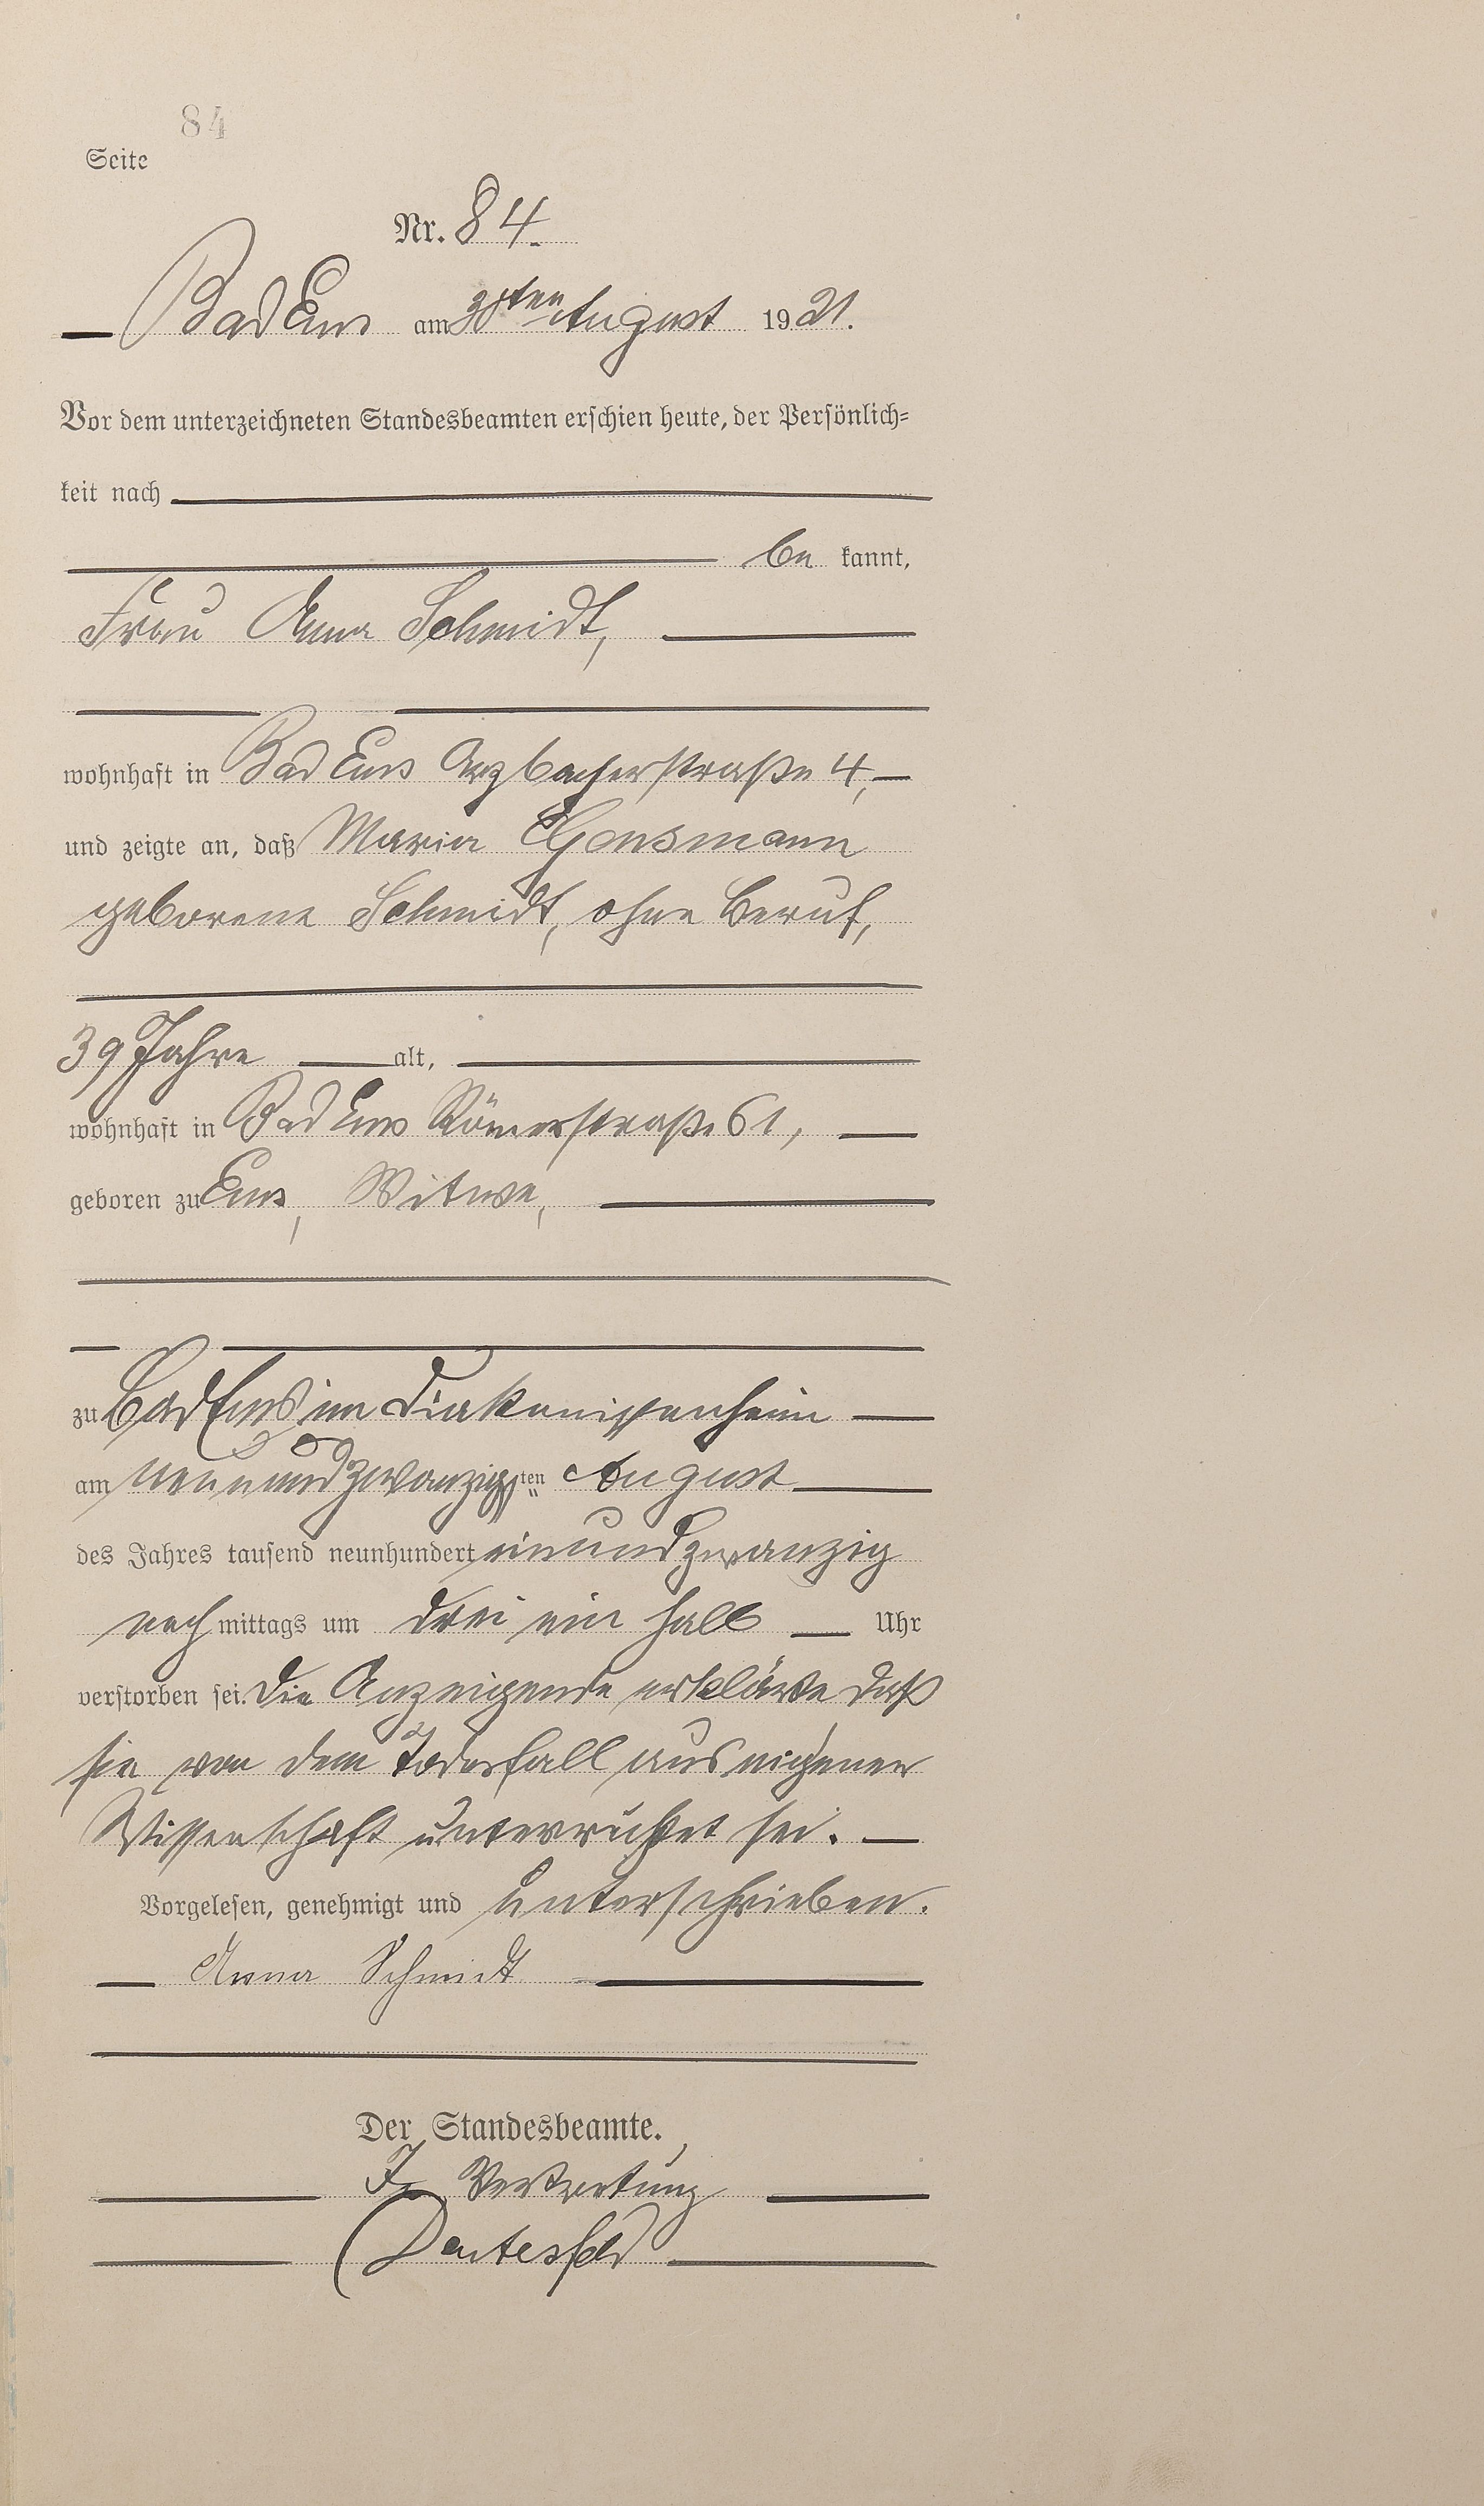 84
Seite
Nr. 84.
Bad Ems am 30ten August 1921.
Vor dem unterzeichneten Standesbeamten erschien heute, der Persönlich=
keit nach
be kannt,
Frau Anna Schmidt,
wohnhaft in Bad Ems Arzbacherstraße 4,
und zeigte an, daß Maria
geborene Schmidt, ohne Beruf,
39 Jahre alt,
wohnhaft in Bad Ems Römerstraße 61,
geboren zu Ems, Witwe,
zu Bad Ems im Diakonissenheim
am neunundzwanzigsten August
des Jahres tausend neunhundert einundzwanzig
nach mittags um drei ein halb Uhr
verstorben sei. Die Anzeigende erklärte daß
sie von dem Todesfall aus eigener
Wissenschaft unterrichtet sei.
Vorgelesen, genehmigt und unterschrieben.
Anna Schmidt
Der Standesbeamte.
In Vertretung